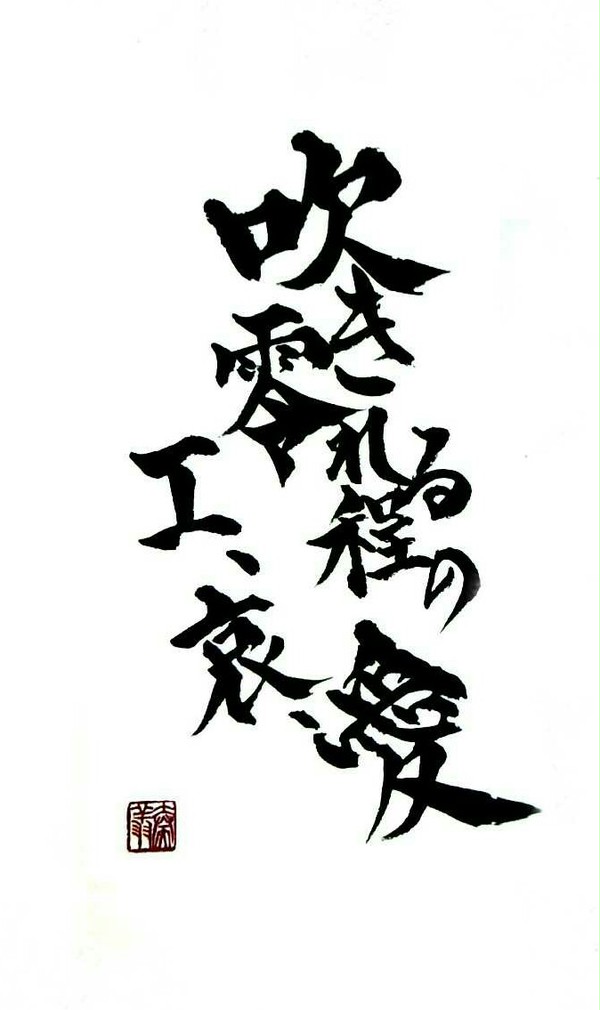 吹き零れる程の
エ、哀、愛